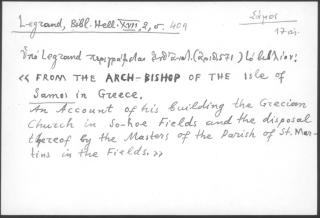 Legrand, Bibl. Hell. XVII, 2, σ. 409
Σάμος
17 αι.
Ὑπὸ Legrand περιγράφεται (ἀριθ. 571) τὸ βιβλίον:
« FROM THE ARCH-BISHOP OF THE Isle of
Samos in Greece.
An Account of his building the Grecian
Church in So-hoe Fields and the disposal
thereof by the Masters of the Parish of St. Mar-
tins in the Fields. »